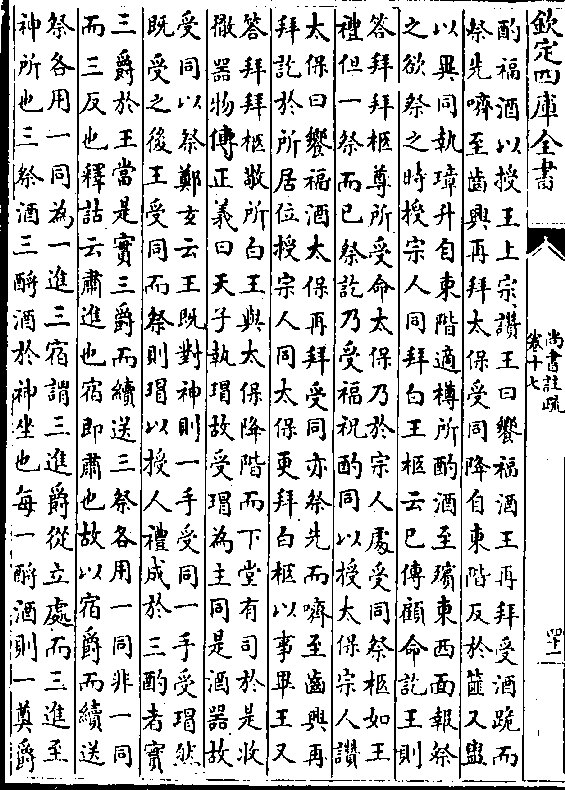 欽定四庫全書
尚書註疏
卷十七
四十二
酌福酒以授王上宗讚王曰饗福酒王再拜受酒跪而
祭先嚌至齒興再拜太保受同降自東階反於篚又盥
以異同執璋升自東階適樽所酌酒至殯東西面報祭
之欲祭之時授宗人同拜白王柩云已傳顧命訖王則
答拜拜柩尊所受命太保乃於宗人處受同祭柩如王
禮但一祭而已祭訖乃受福祝酌同以授太保宗人讚
太保曰饗福酒太保再拜受同亦祭先而嚌至齒興再
拜訖於所居位授宗人同太保更拜白柩以事畢王又
答拜拜柩敬所白王與太保降階而下堂有司於是收
徹器物傳正義曰天子執瑁故受瑁為主同是酒器故
受同以祭鄭玄云王既對神則一手受同一手受瑁然
既受之後王受同而祭則瑁以授人禮成於三酌者實
三爵於王當是實三爵而續送三祭各用一同非一同
而三反也釋詁云肅進也宿即肅也故以宿爵而續送
祭各用一同為一進三宿謂三進爵從立處而三進至
神所也三祭酒三酹酒於神坐也每一酹酒則一奠爵